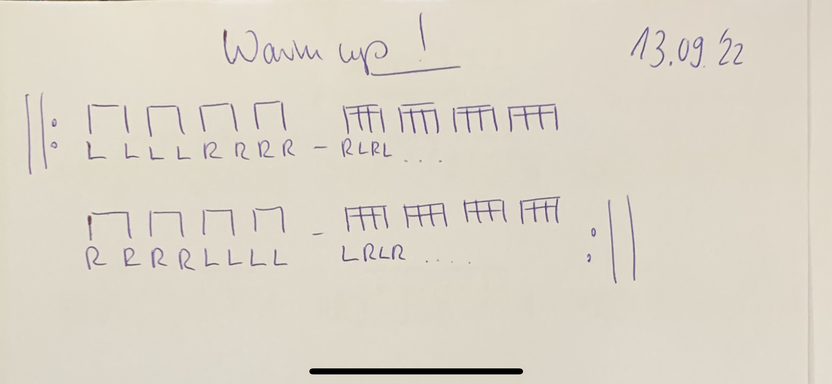 Warm up! 13.09.'22
L L L L R R R R - RLRL ...
R R R R L L L L - LRLR ....